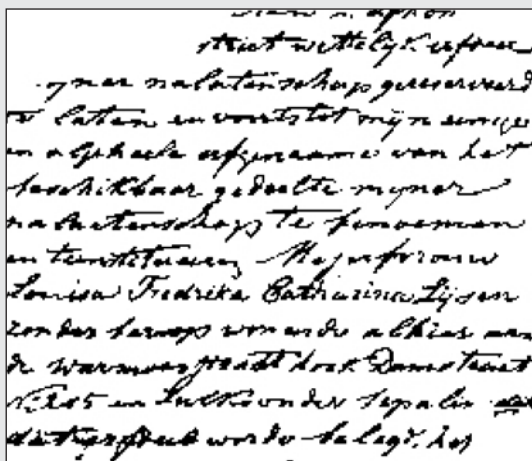 strict wettelijk erfdeel
mijner nalatenschap gereserveerd
te laten en voorts tot mijn eenige
en algeheele erfgenaame van het
beschikbaar gedeelte mijner
nalatenschap te benoemen
en te institueeren Mejufvrouw
Louisa Fredrika Catharina Lijsen
zonder beroep wonende alhier aan
de warmoesstraat hoek Damstraat
en zulks onder bepaling
worde belegd, het